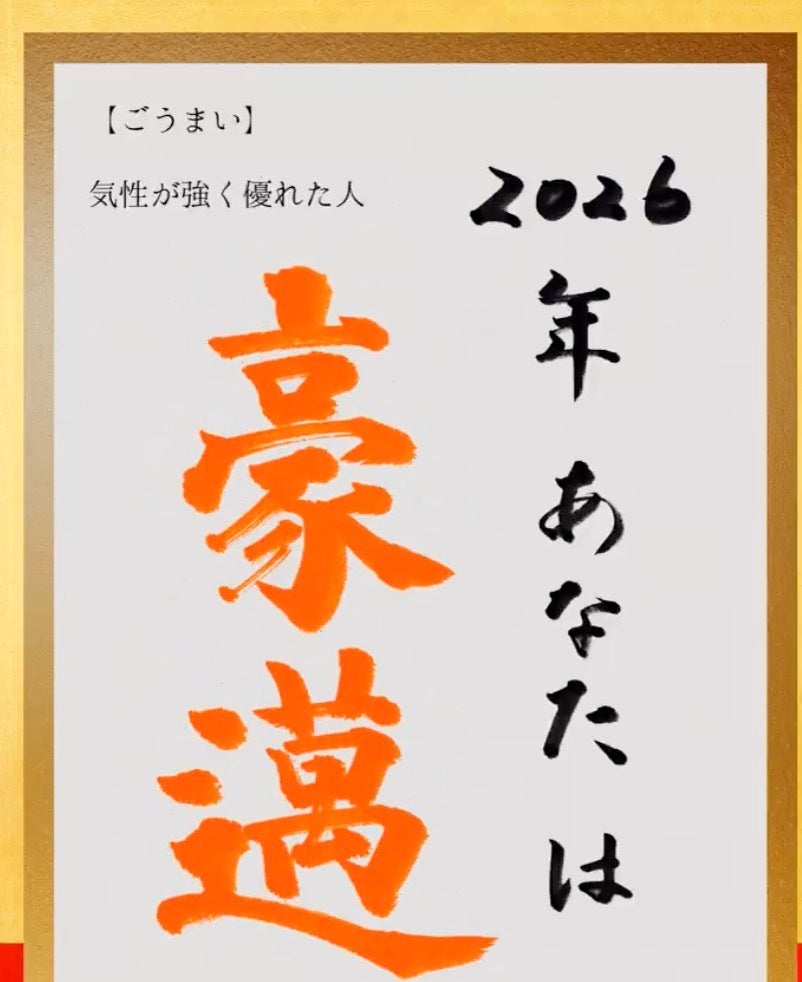 【ごうまい】
気性が強く優れた人
2026年 あなたは
豪邁